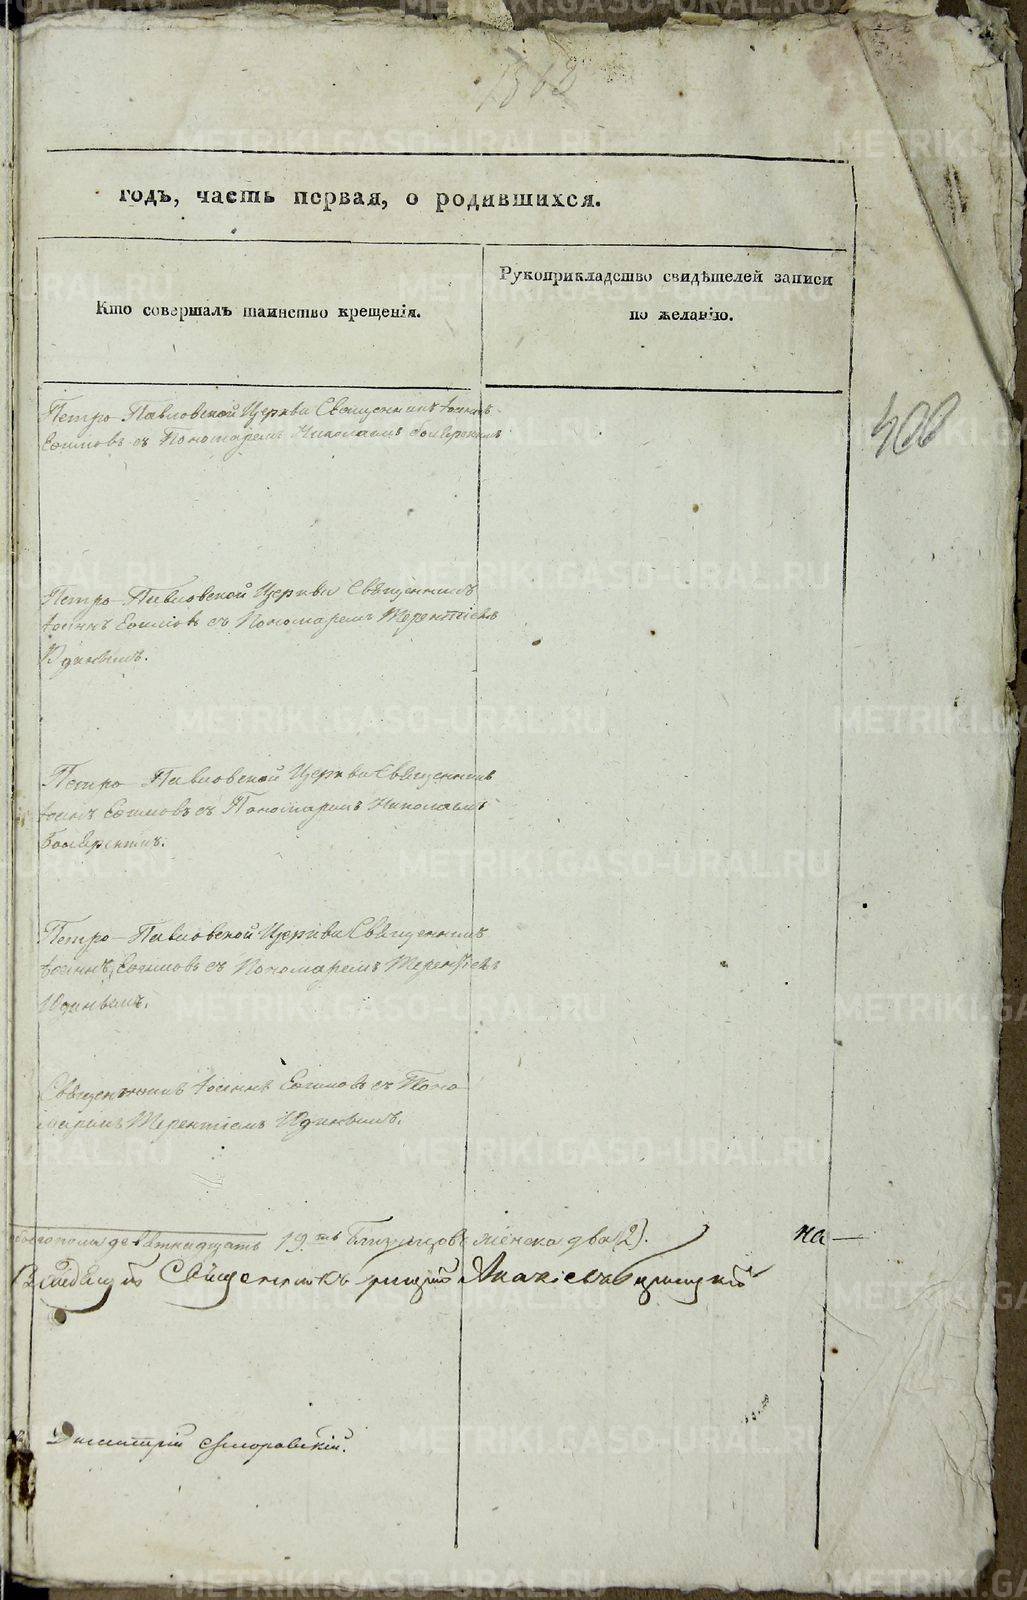 годъ, часть первая, о родившихся.
Кто совершалъ таинство крещенія.
Рукоприкладство свидѣтелей записи
по желанію.
400
Петро-Павловской Церкви Священникъ Іоаннъ
Ефимовъ съ Пономаремъ Николаемъ
Петро-Павловской Церкви Священникъ
Іоаннъ Ефимовъ съ Пономаремъ Терентіемъ
Удинцымъ.
Петро-Павловской Церкви Священникъ
Іоаннъ Ефимовъ съ Пономаремъ Николаемъ
Петро-Павловской Церкви Священникъ
Іоаннъ Ефимовъ съ Пономаремъ Терентіемъ
Удинцымъ.
Священникъ Іоаннъ Ефимовъ съ Поно
маремъ Терентіемъ Удинцымъ.
девятнадцать 19ть Близнецовъ женска два (2).
на
Священникъ
Димитрій
METRIKI.GASO-URAL.RU